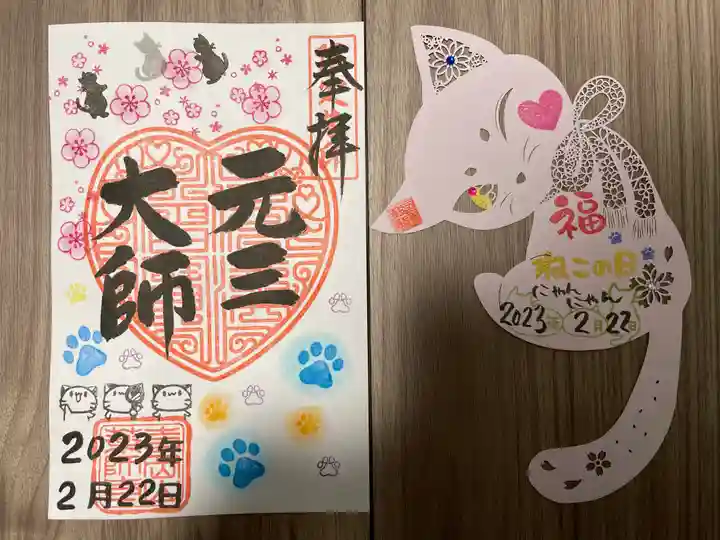 奉拝
元三
大師
2023年
2月22日
福
ねこの日
にゃん
にゃん
2023年2月22日